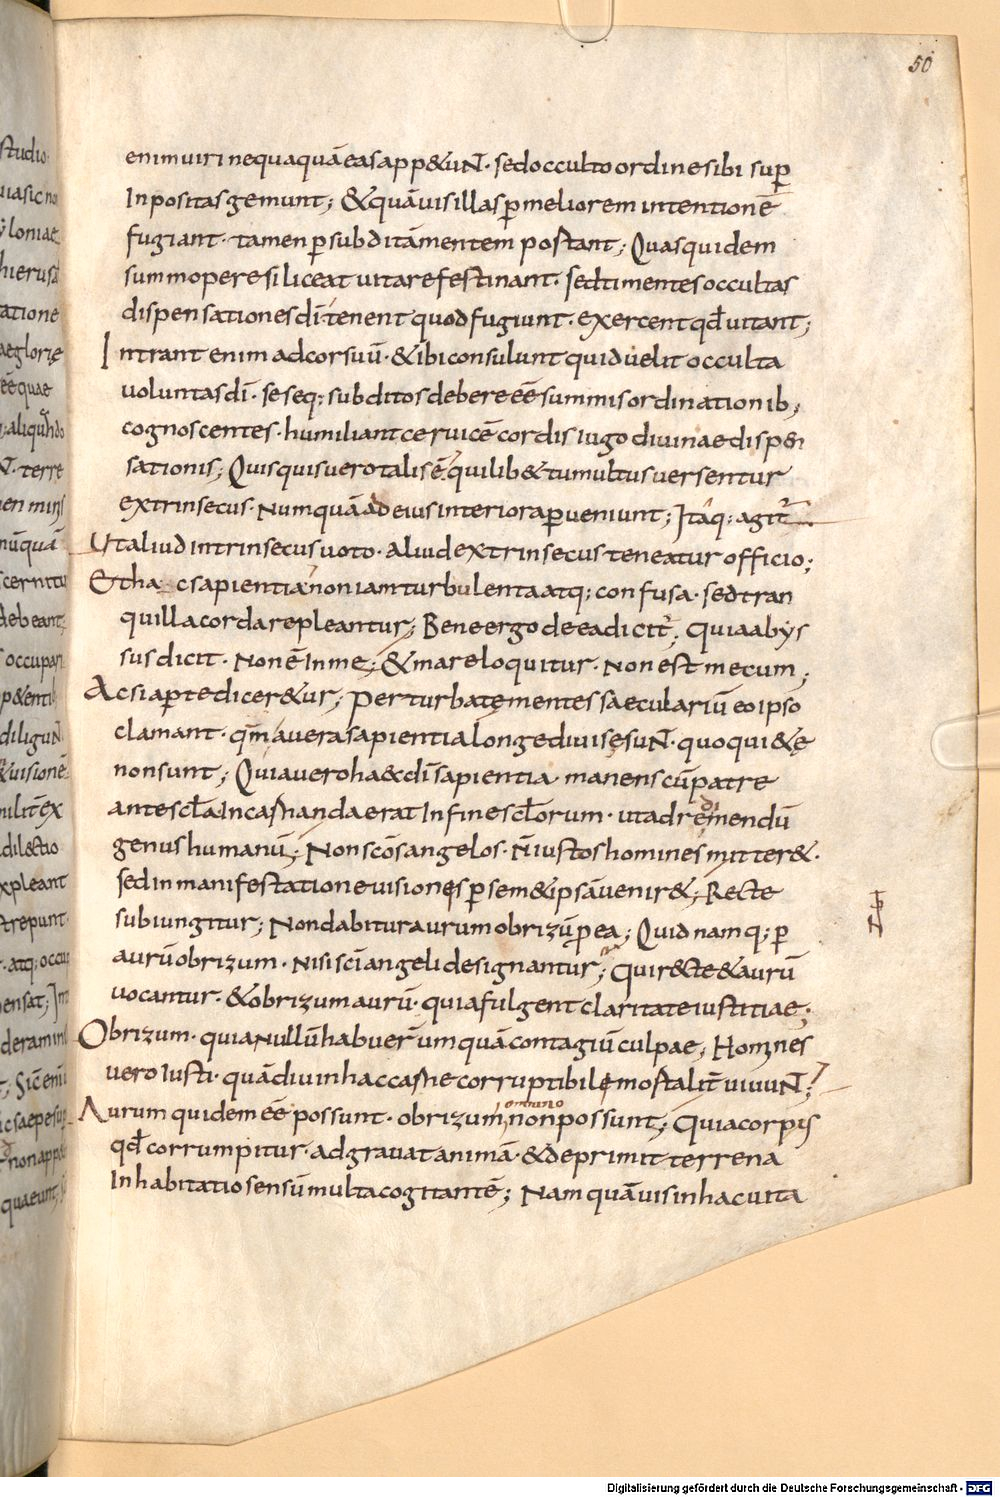 50
enim uiri nequaquā eas app&uN· sed occulto ordine sibi sup̄
Inpositas gemunt; & quāuis illas p̄ meliorem intentionē
fugiant· tamen p̄ subditā mentem portant; Quas quidem
summopere si liceat uitare festinant· sed timentes occultas
dispensationes dī tenent quod fugiunt· exercent qd̄ uitant;
Intrant enim ad cor suū· & ibi consulunt quid uelit occulta
uoluntas dī· seseq; subditos debere eē summis ordinationib;
cognoscentes· humiliant ceruicē cordis iugo diuinae dispen
sationis; Quisquis uero talis ē· quilib& tumultus uersentur
extrinsecus· Numquā ad eius interiora p̄ueniunt; Itaq; agit̄
Ut aliud intrinsecus uoto· aliud extrinsecus teneatur officio;
Et hac sapientia non iam turbulenta atq; confusa· sed tran
quilla corda repleantur; Bene ergo de ea dicit̄; Quia abys
sus dicit· Non ē In me; & mare loquitur· Non est mecum;
Ac si ap̄te dicer&ur; Perturbatę mentes saeculariū eo ipso
clamant· qm̄ a uera sapientia longe diuisę suN· quo qui&ę
non sunt; Quia uero haec dī sapientia manens cū patre
ante scl̄a Incarnanda erat In fine scl̄orum· ut ad redimendū
genus humanū; Non scōs angelos· N̄ iustos homines mitter&·
sed in manifestatione uisionis p̄ sem&ipsā uenir&; Recte
subiungitur; Non dabitur aurum obrizū p̄ ea; Quid namq; p̄
aurū obrizum· Nisi scī angeli designantur; Qui recte & aurū
uocantur· & obrizum aurū· quia fulgent claritate iustitiae;
Obrizum· quia Nullū habuer̄ umquā contagiū culpae; Homines
uero Iusti· quādiu in hac carne corruptibilę mortalit̄ uiuuN;
omnino
Aurum quidem eē possunt· obrizum non possunt; Quia corpus
qd̄ corrumpitur· adgrauat animā· & deprimit terrena
Inhabitatio sensū multa cogitantē; Nam quāuis in hac uita
Digitalisierung gefördert durch die Deutsche Forschungsgemeinschaft - DFG